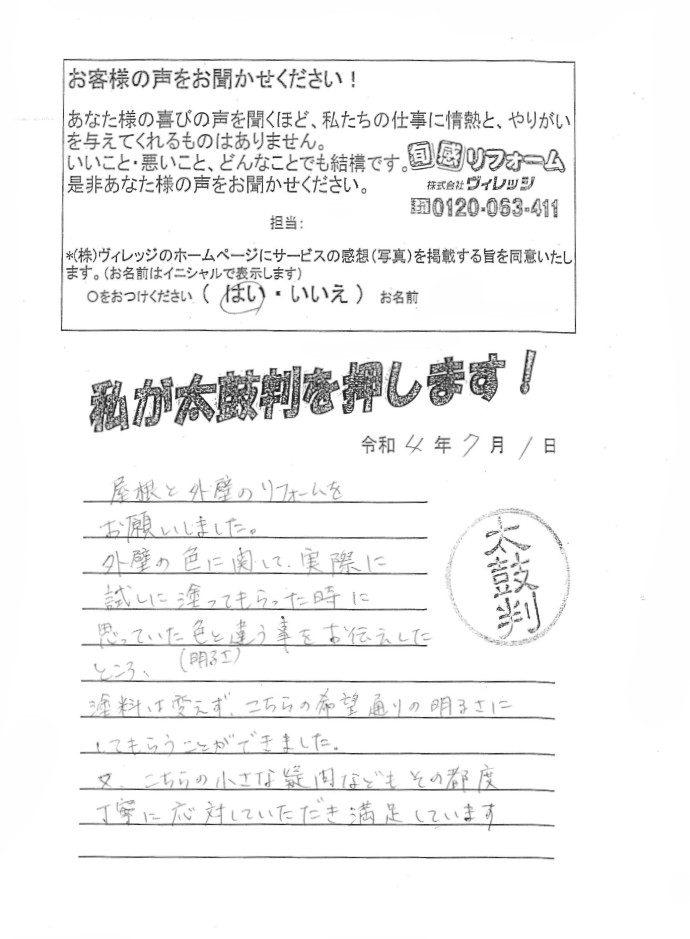 お客様の声をお聞かせください！
あなた様の喜びの声を聞くほど、私たちの仕事に情熱と、やりがい
を与えてくれるものはありません。
いいこと・悪いこと、どんなことでも結構です。
是非あなた様の声をお聞かせください。
旬感リフォーム
株式会社ヴィレッジ
0120-063-411
担当：
*(株)ヴィレッジのホームページにサービスの感想（写真）を掲載する旨を同意いたし
ます。（お名前はイニシャルで表示します）
〇をおつけください（ はい ・ いいえ ） お名前
私が太鼓判を押します！
令和 4 年 7 月 1 日
屋根と外壁のリフォームを
お願いしました。
外壁の色に関して、実際に
試しに塗ってもらった時に
思っていた色と違う事をお伝えした
(明るさ)
ところ、
塗料は変えず、こちらの希望通りの明るさに
してもらうことができました。
又、こちらの小さな疑問などもその都度
丁寧に応対していただき満足しています
太鼓判